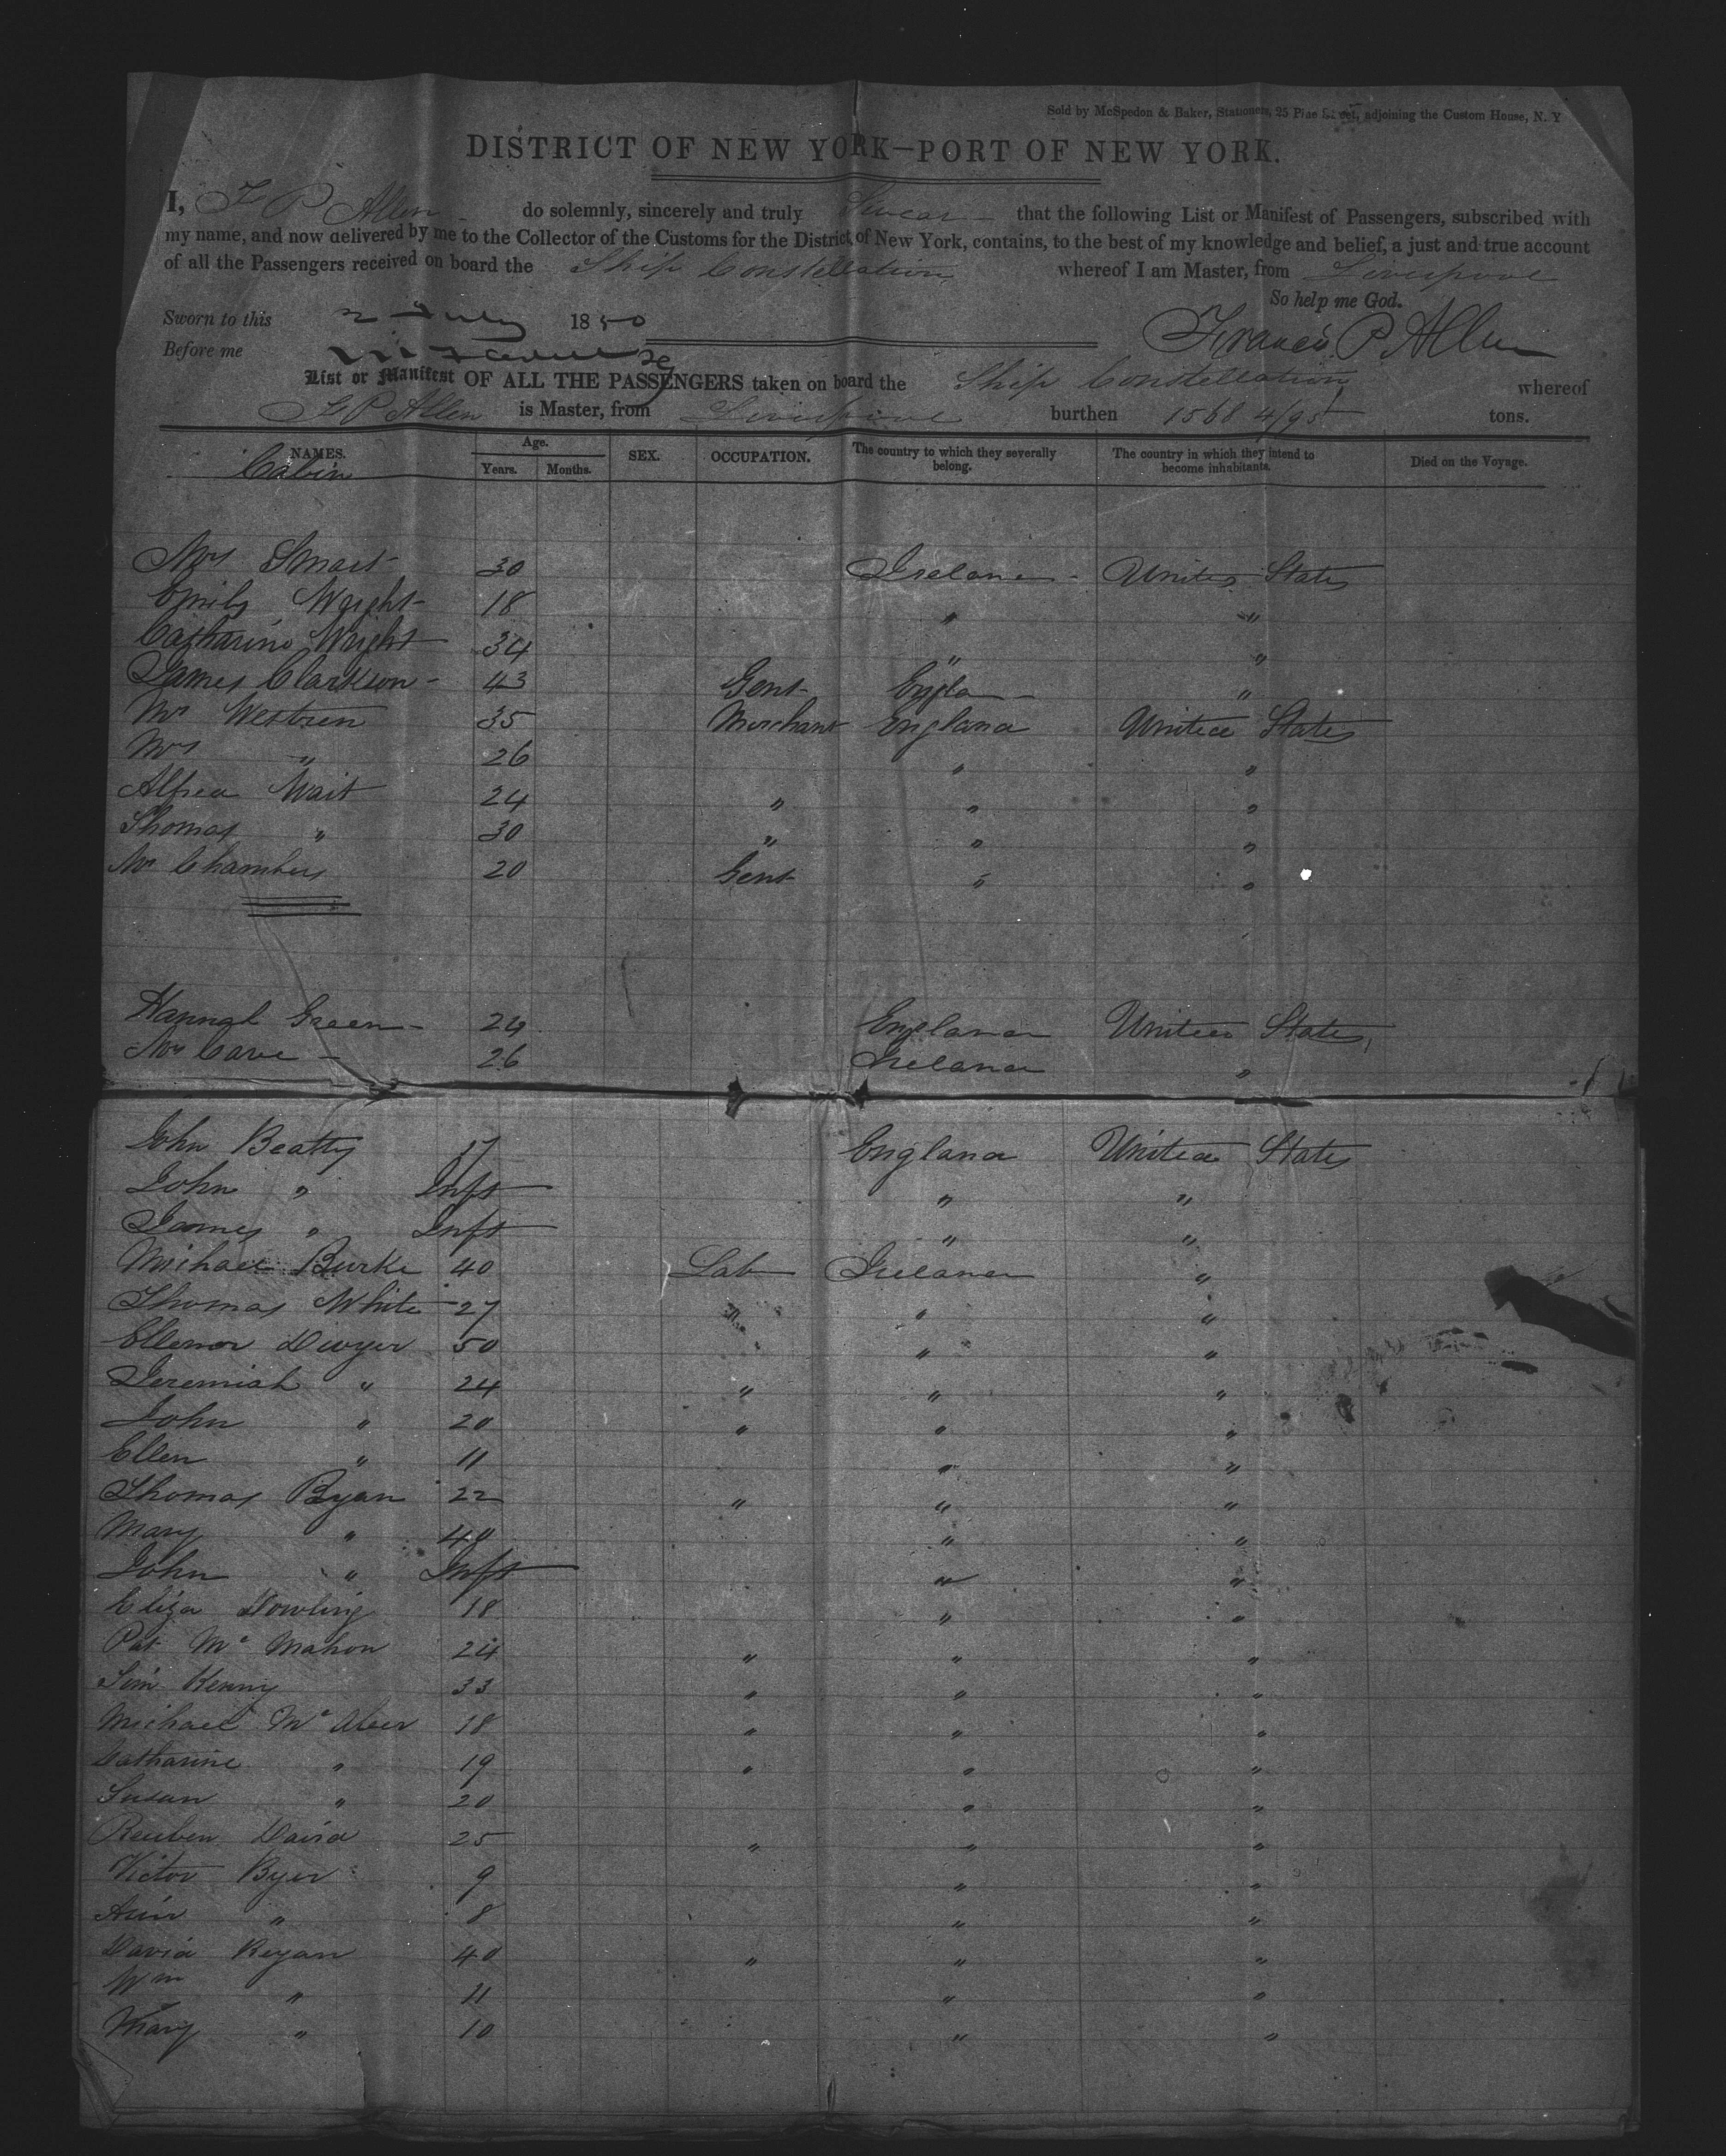 Sold by McSpedon & Baker, Stationers, 25 Pine Street, adjoining the Custom House, N. Y
DISTRICT OF NEW YORK—PORT OF NEW YORK.
I, F P Allen do solemnly, sincerely and truly Swear that the following List or Manifest of Passengers, subscribed with
my name, and now delivered by me to the Collector of the Customs for the District of New York, contains, to the best of my knowledge and belief, a just and true account
of all the Passengers received on board the Ship Constellation whereof I am Master, from Liverpool
So help me God.
Sworn to this 2 July 1850
Francis P Allen
Before me
List or Manifest OF ALL THE PASSENGERS taken on board the Ship Constellation whereof
F P Allen is Master, from Liverpool burthen 1568 4/95 tons.
NAMES. Age. Years. Months. SEX. OCCUPATION. The country to which they severally belong. The country in which they intend to become inhabitants. Died on the Voyage.
Cabin
Mrs Smart 30 Ireland United States
Emily Wright 18 " "
Catharine Wright 34 " "
James Clarkson 43 Gent Engla "
Mr Western 35 Merchant England United States
Mrs " 26 " "
Alfred Wait 24 " " "
Thomas " 30 " " "
Mr Chambers 20 Gent " "
Hannah Green 24 England United States
Mrs Cave 26 Ireland "
John Beatty 17 England United States
John " Inft " "
James " Inft " "
Michael Burke 40 Lab Ireland "
Thomas White 27 " "
Ellenor Dwyer 50 " "
Jeremiah " 24 " " "
John " 20 " " "
Ellen " 11 " "
Thomas Ryan 22 " " "
Mary " 40 " "
John " Inft " "
Eliza Dowling 18 " "
Pat Mc Mahon 24 " " "
Sim Kenny 33 " " "
Michael Mc 18 " " "
Catharine " 19 " " "
Susan " 20 " "
Reuben David 25 " " "
Victor Byer 9 " "
" 8 " "
David Regan 40 " " "
Wm " 11 " "
Mary " 10 " "